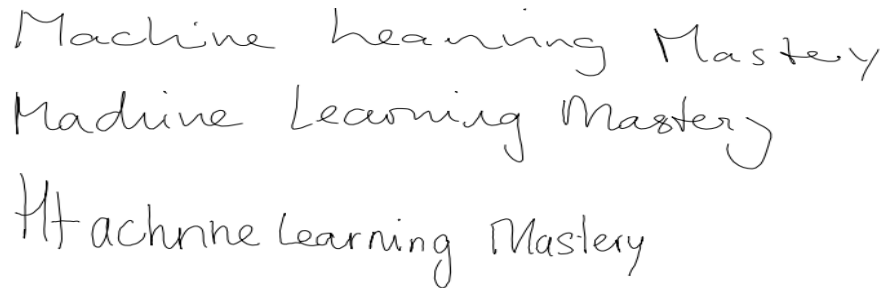 Machine Learning Mastery
Machine Learning Mastery
Machine Learning Mastery